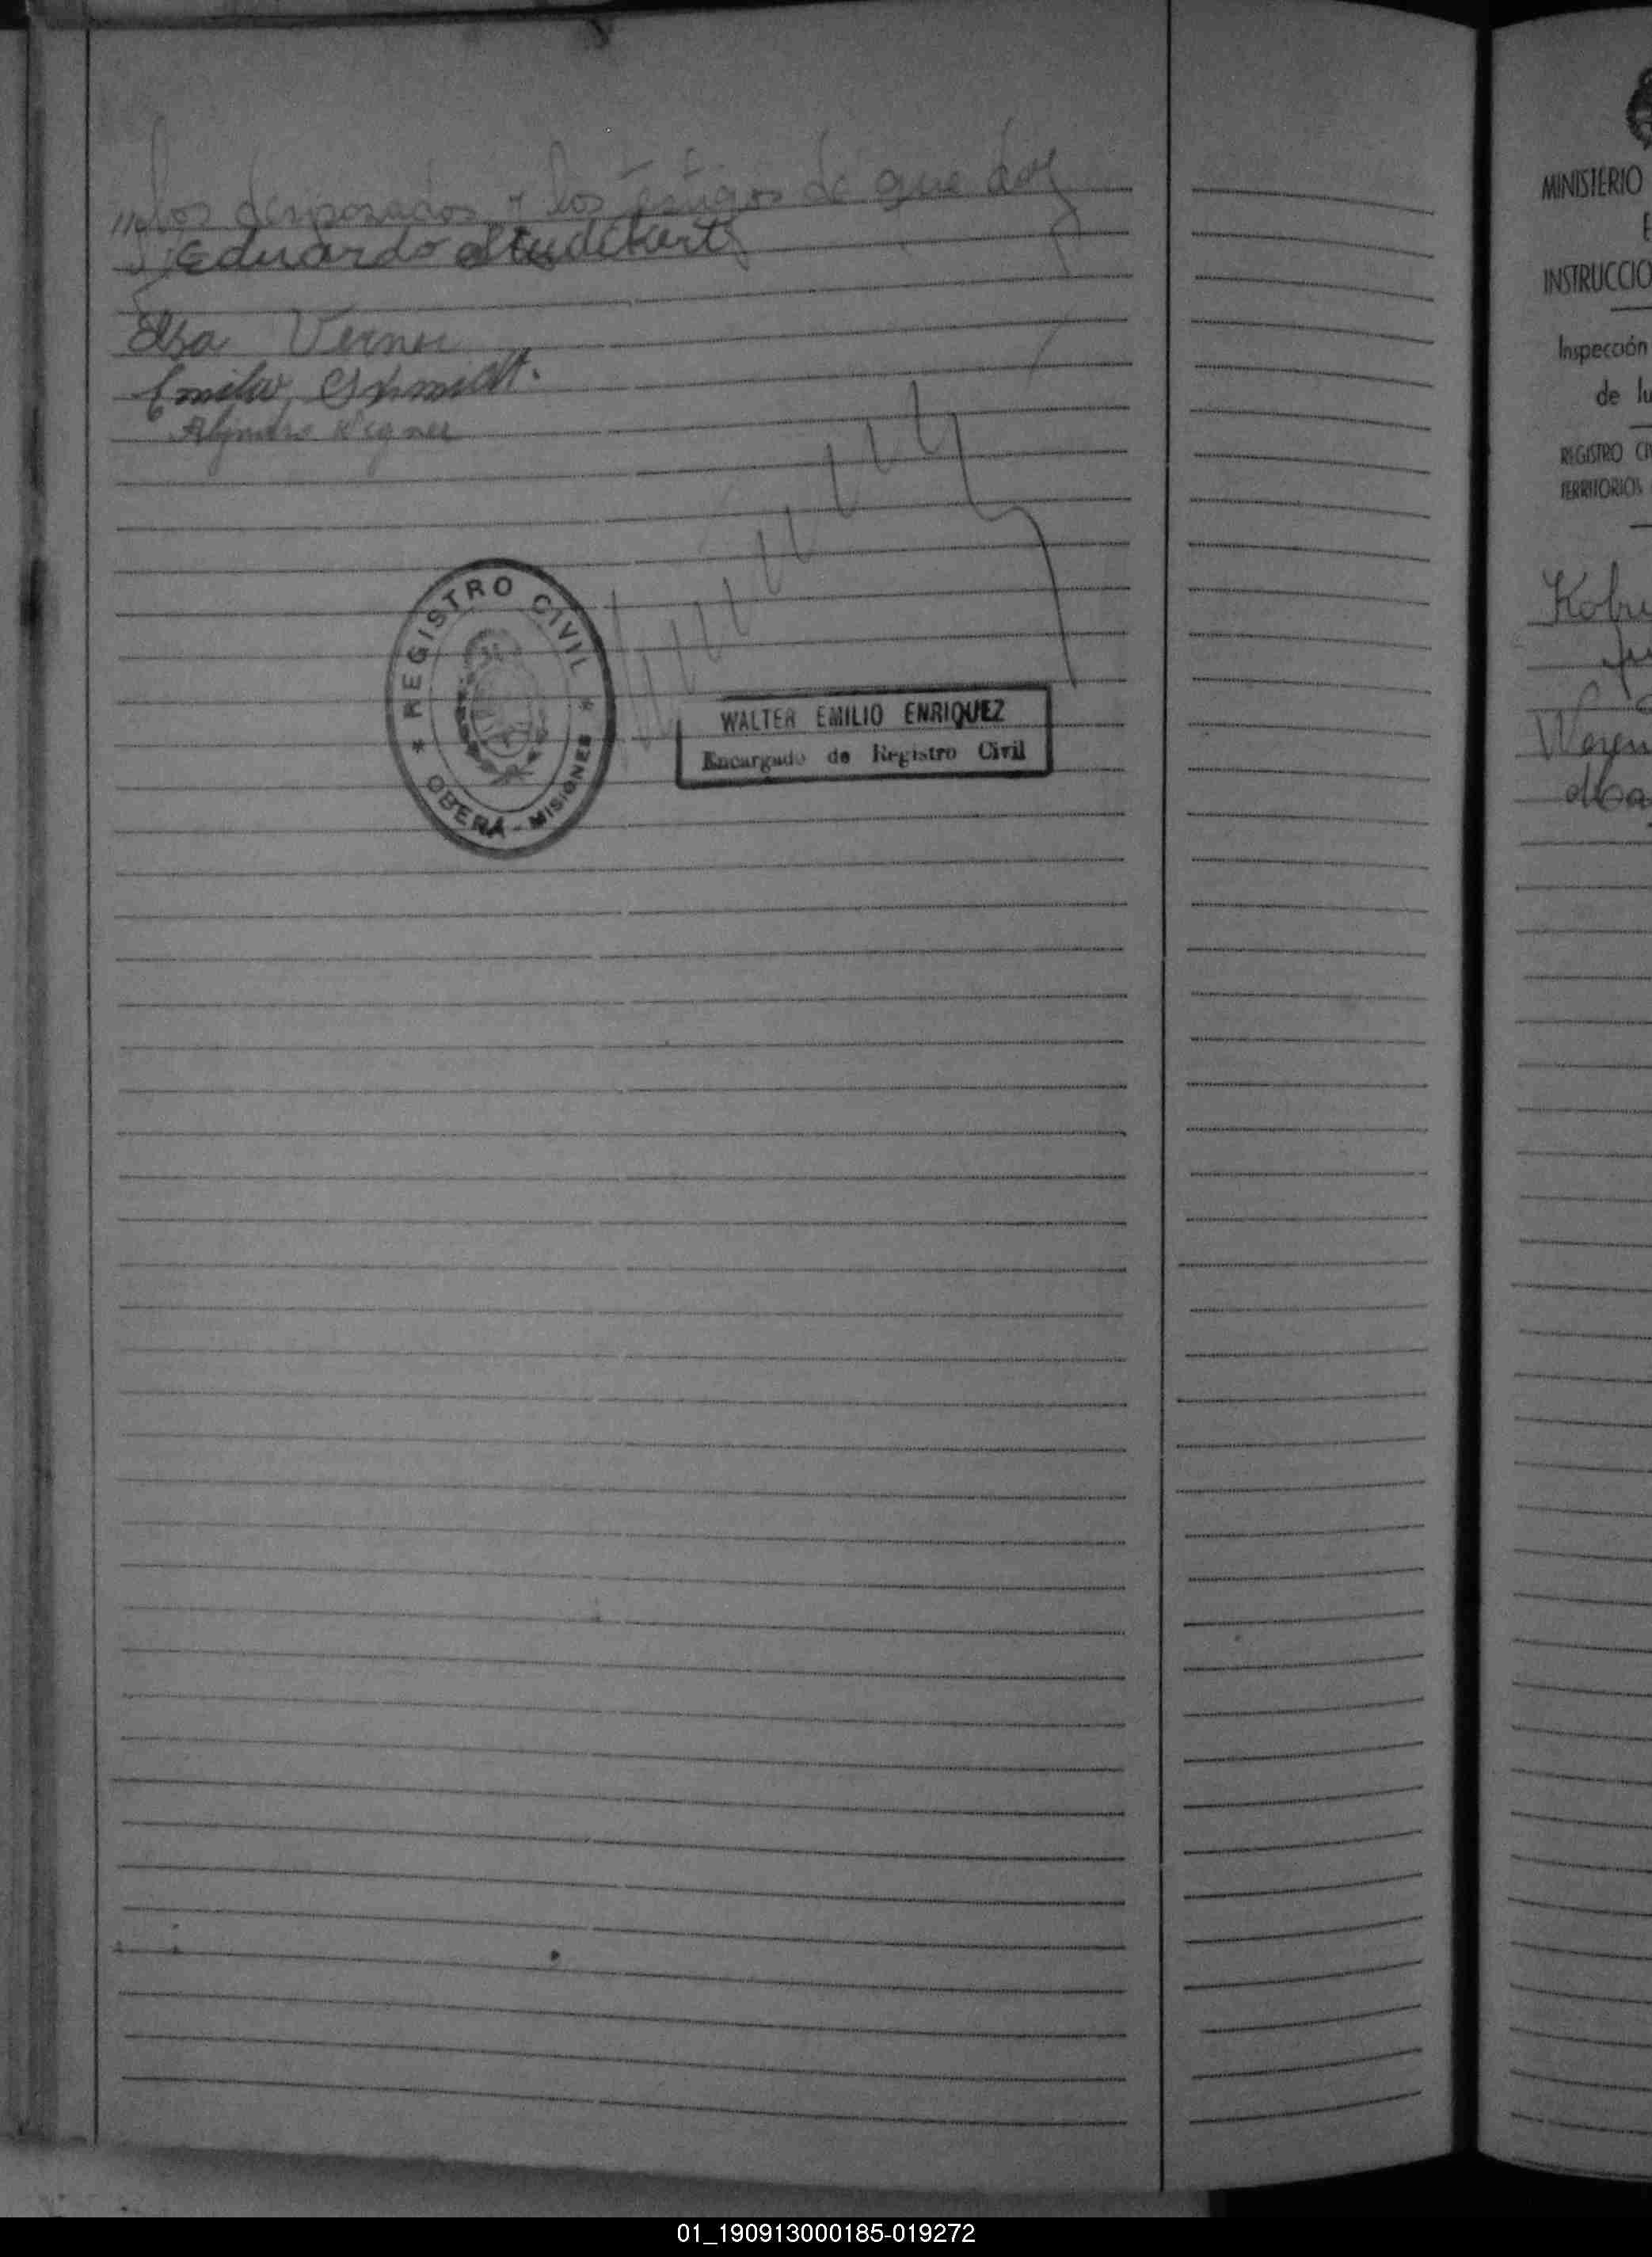 "los desposados y los testigos de que doy
Eduardo
Elsa Verner
Emilio Schmidt.
Alejandro Wegner
REGISTRO CIVIL
OBERÁ - MISIONES
WALTER EMILIO ENRIQUEZ
Encargado de Registro Civil
MINISTERIO
E
INSTRUCCIO
Inspección
de Ju
REGISTRO CI
TERRITORIOS
Kobu
01_190913000185-019272